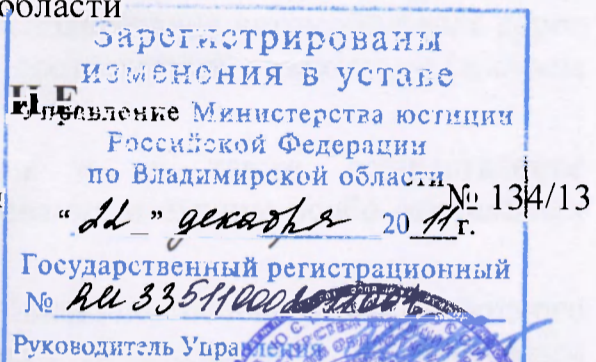 области
Зарегистрированы
изменения в уставе
Управление Министерства юстиции
Российской Федерации
по Владимирской области
№ 134/13
“22” декабря 2011г.
Государственный регистрационный
№
Руководитель Управления